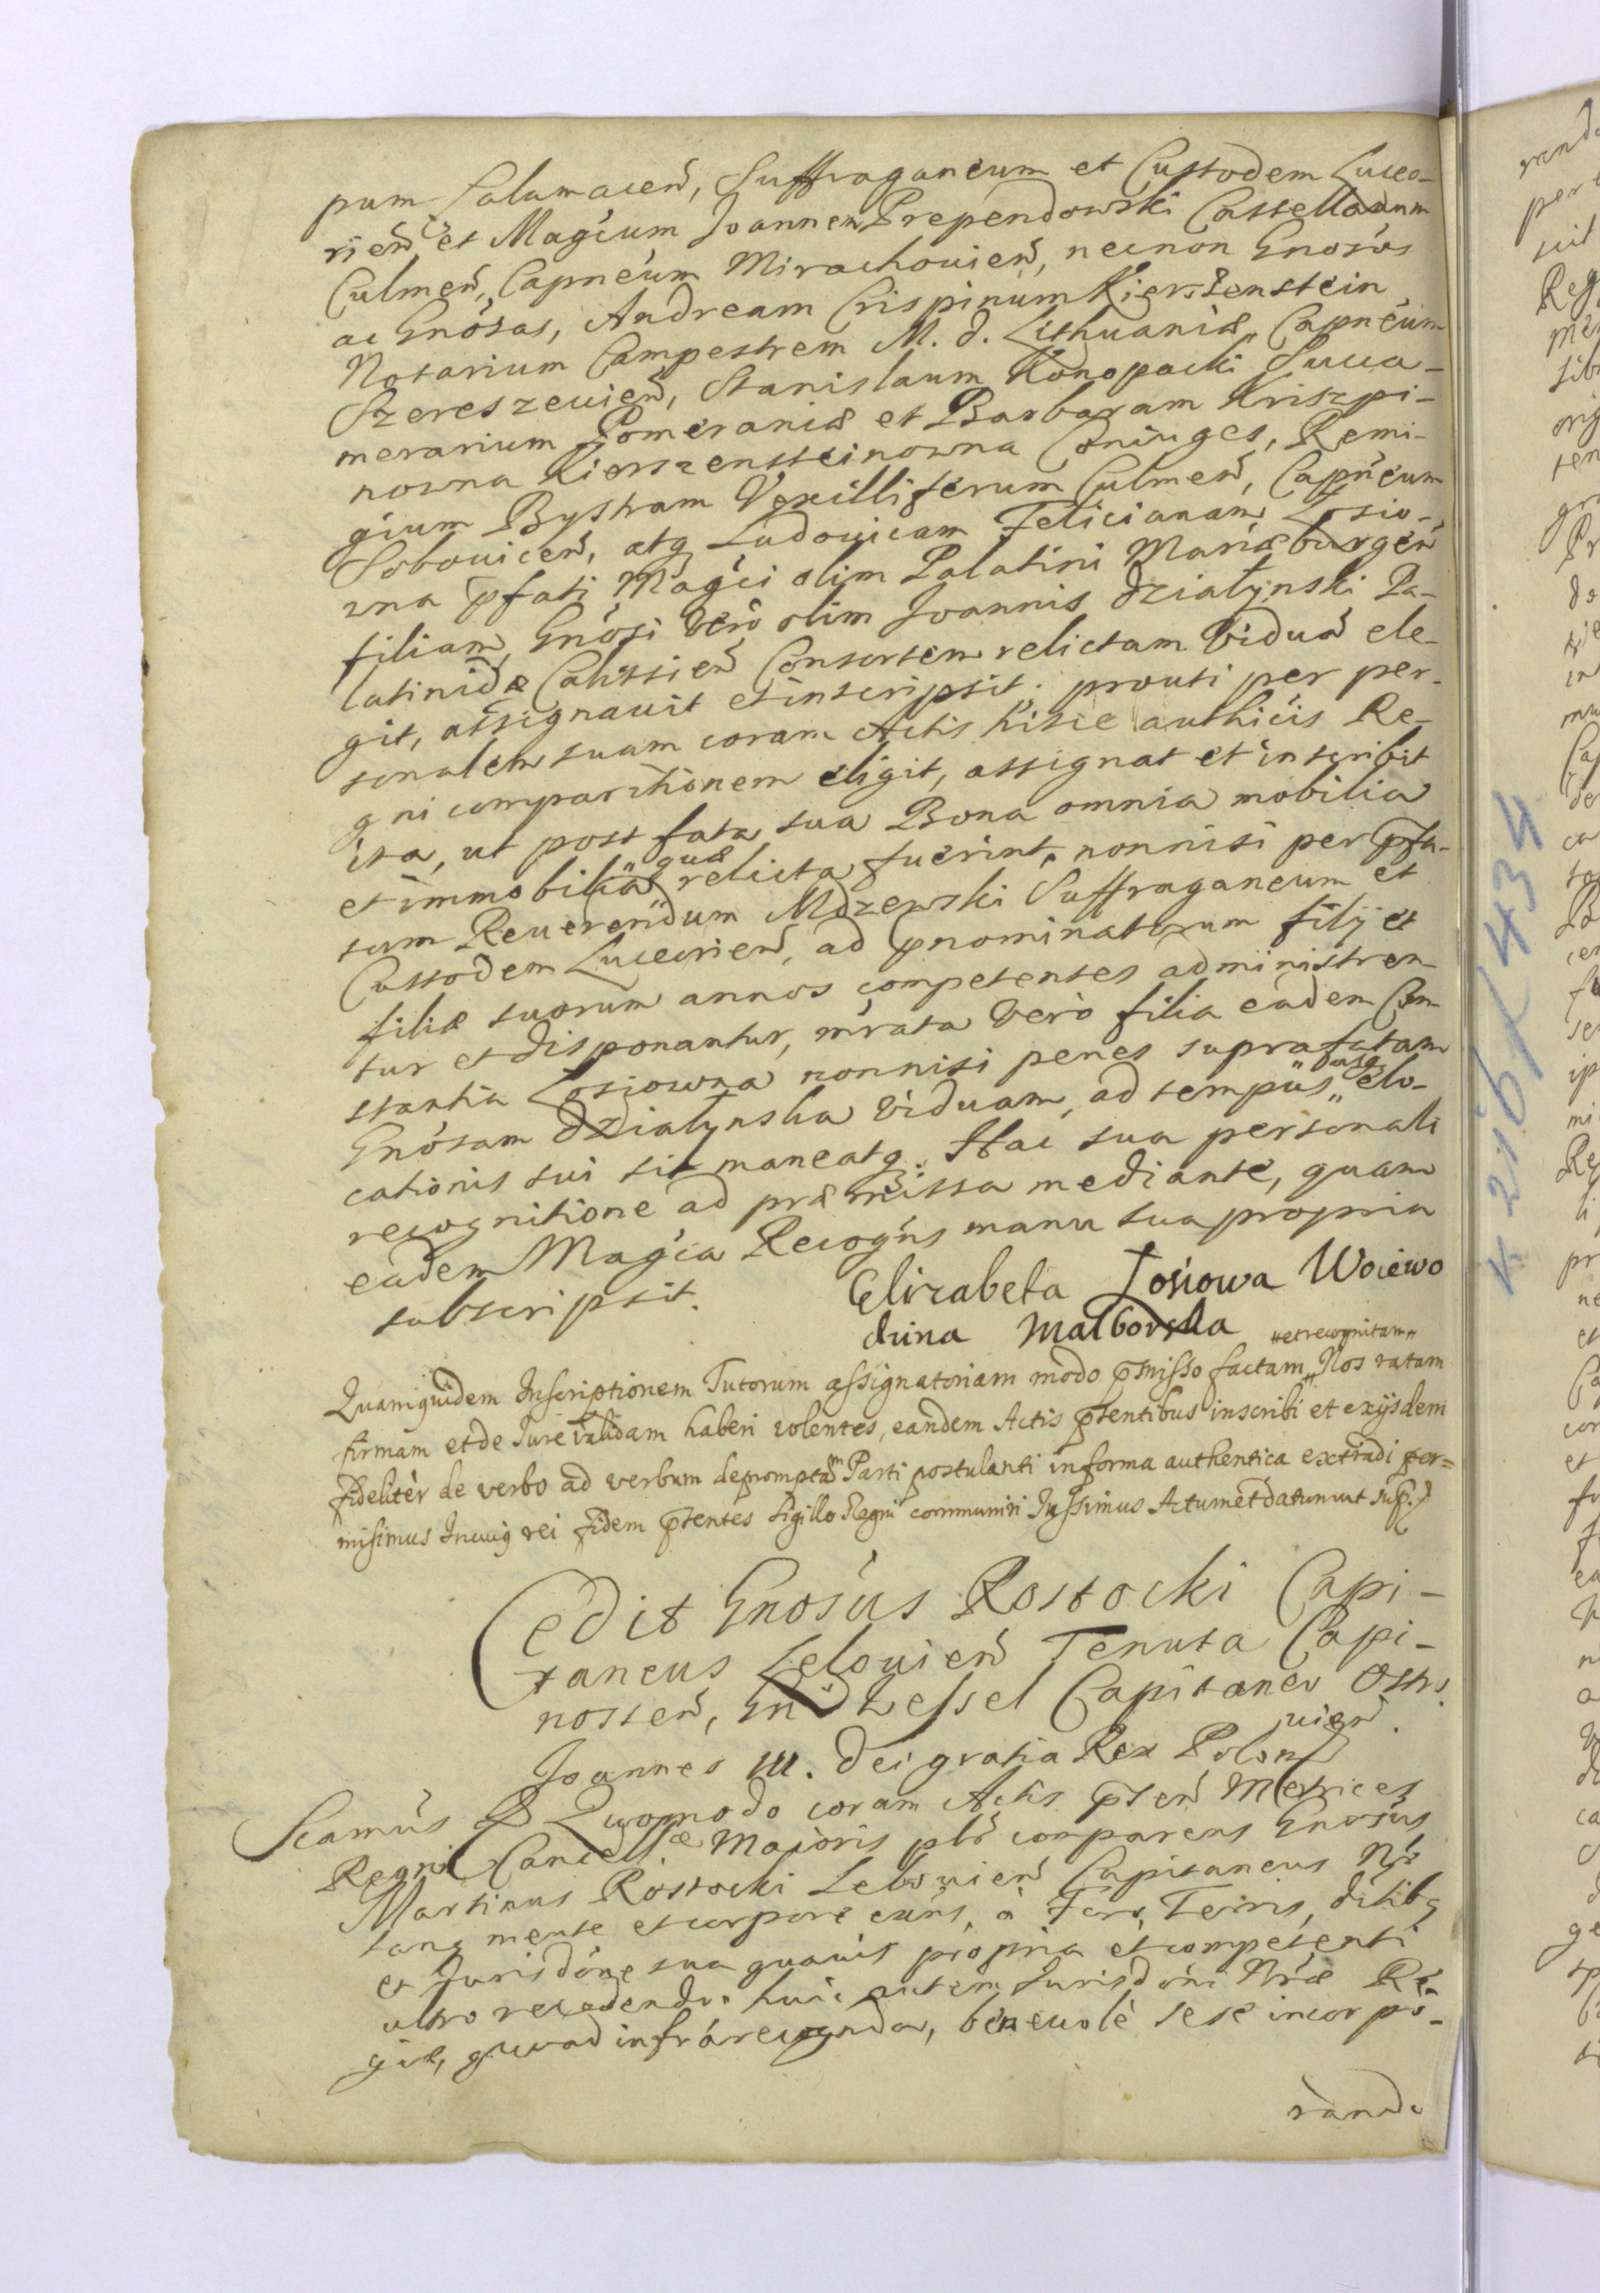 pum Calamaceñ, Suffraganeum et Custodem Luceo-
rieñ et Magćum Joannem Prependowski Castellanum
Culmeñ, Capnéum Mirachouieñ, necnon Gnosós
ac Gnósas, Andream Crispinum Kierszenstein
Notarium Campestrem M. d. Lithuaniæ, Capnéum
Szereszeuieñ, Stanislaum Konopacki Succa-
merarium Pomeraniæ et Barbaram Kriszpi-
nowna Kierszensteinowna Coniuges, Remi-
gium Bystram Vexilliferum Culmeñ, Capnéum
Sobouiceñ, atq Ludouicam Felicianam Łosio-
wna pfati Magći olim Palatini Mariæburgeñ
filiam, Gnósi verò olim Joannis Działynski Pa-
latinidæ Calissieñ Consortem relictam Viduã ele-
git, assignauit et inscripsit; prouti per per-
sonalem suam coram Actis hisce authićis Re-
gni comparitionem eligit, assignat et inscribit
ita, ut post fata sua Bona omnia mobilia
et immobilia „quæ relicta fuerint, nonnisi per pfa-
tum Reuerendum Mdzewski Suffraganeum et
Custodem Luceorieñ, ad pnominatorum filij et
filiæ suorum annos competentes administren-
tur et disponantur, nŕata verò filia eadem Con-
stantia Łosiowna nonnisi penes suprafatam
Gnósam Działynska Viduam, ad tempus „ elo-
cationis sui sit maneatq. Hac sua personali
recognitione ad præmissa mediante, quam
eadem Magća Recogńs manu sua propria
subscripsit.
Elizabeta Łosiowa Woiewo
dzina Malborska
„et recognitam„
Quamquidem Inscriptionem Tutorum assignatoriam modo pmisso factam„ Nos ratam
firmam et de Iure validam haberi volentes, eandem Actis ptentibus inscribi et exijsdem
fideliter de verbo ad verbum depromptam Parti postulanti in forma authentica extradi per=
misimus Incuiq rei fidem ptentes Sigillo Regni communiri Iussimus Actum et datum ut sup.
Cedit Gnosús Rostocki Capi-
taneus Lelouieñ Tenuta Capi-
nosteñ, Gń Wessel Capitaneo Ostro-
uieñ.
Joannes III. Dei gratia Rex Polon
Scamús Quomodo coram Actis pteñ Metrices
Regni Cancellæ Majoris plr comparens Gnosús
Martinus Rostocki Lelouieñ Capitaneus Nr
sanq mente et corpore exńs, à Foro, Terris, dstibq
et Jurisdóne sua quauis propria et competenti
ultro recedendo. huic autem Jurisdóni Nræ Re-
giæ, quoad infrárecognda, beneuolè sese incorpo-
rando
K 216/434